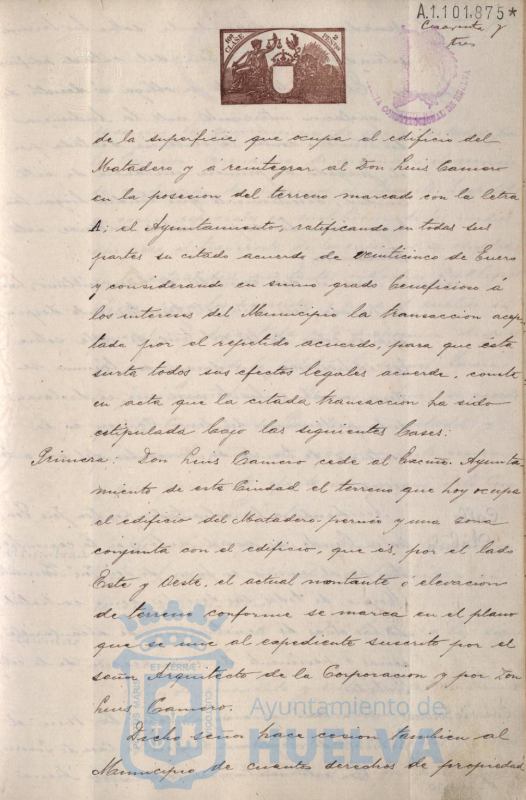 A.1.101.875*
Cuarenta y
tres
10ª CLASE
2 PESETAS
de la superficie que ocupa el edificio del
Matadero y á reintegrar al Don Luis Camero
en la posesion del terreno marcado con la letra
A; el Ayuntamiento, ratificando en todas sus
partes su citado acuerdo de veinticinco de Enero
y considerando en sumo grado beneficioso á
los intereses del Municipio la transaccion acep-
tada por el repetido acuerdo, para que esta
surta todos sus efectos legales acuerda, conste
en acta que la citada transaccion ha sido
estipulada bajo las siguientes bases:
Primera: Don Luis Camero cede al Excmo. Ayunta-
miento de esta Ciudad el terreno que hoy ocupa
el edificio del Matadero y una zona
conjunta con el edificio, que es, por el lado
Este y Oeste, el actual montante ó elevacion
de terreno conforme se marca en el plano
que se une al expediente suscrito por el
señor Arquitecto de la Corporacion y por Don
Luis Camero.
Dicho señor hace cesion tambien al
Municipio de cuantos derechos de propiedad
Ayuntamiento de
HUELVA